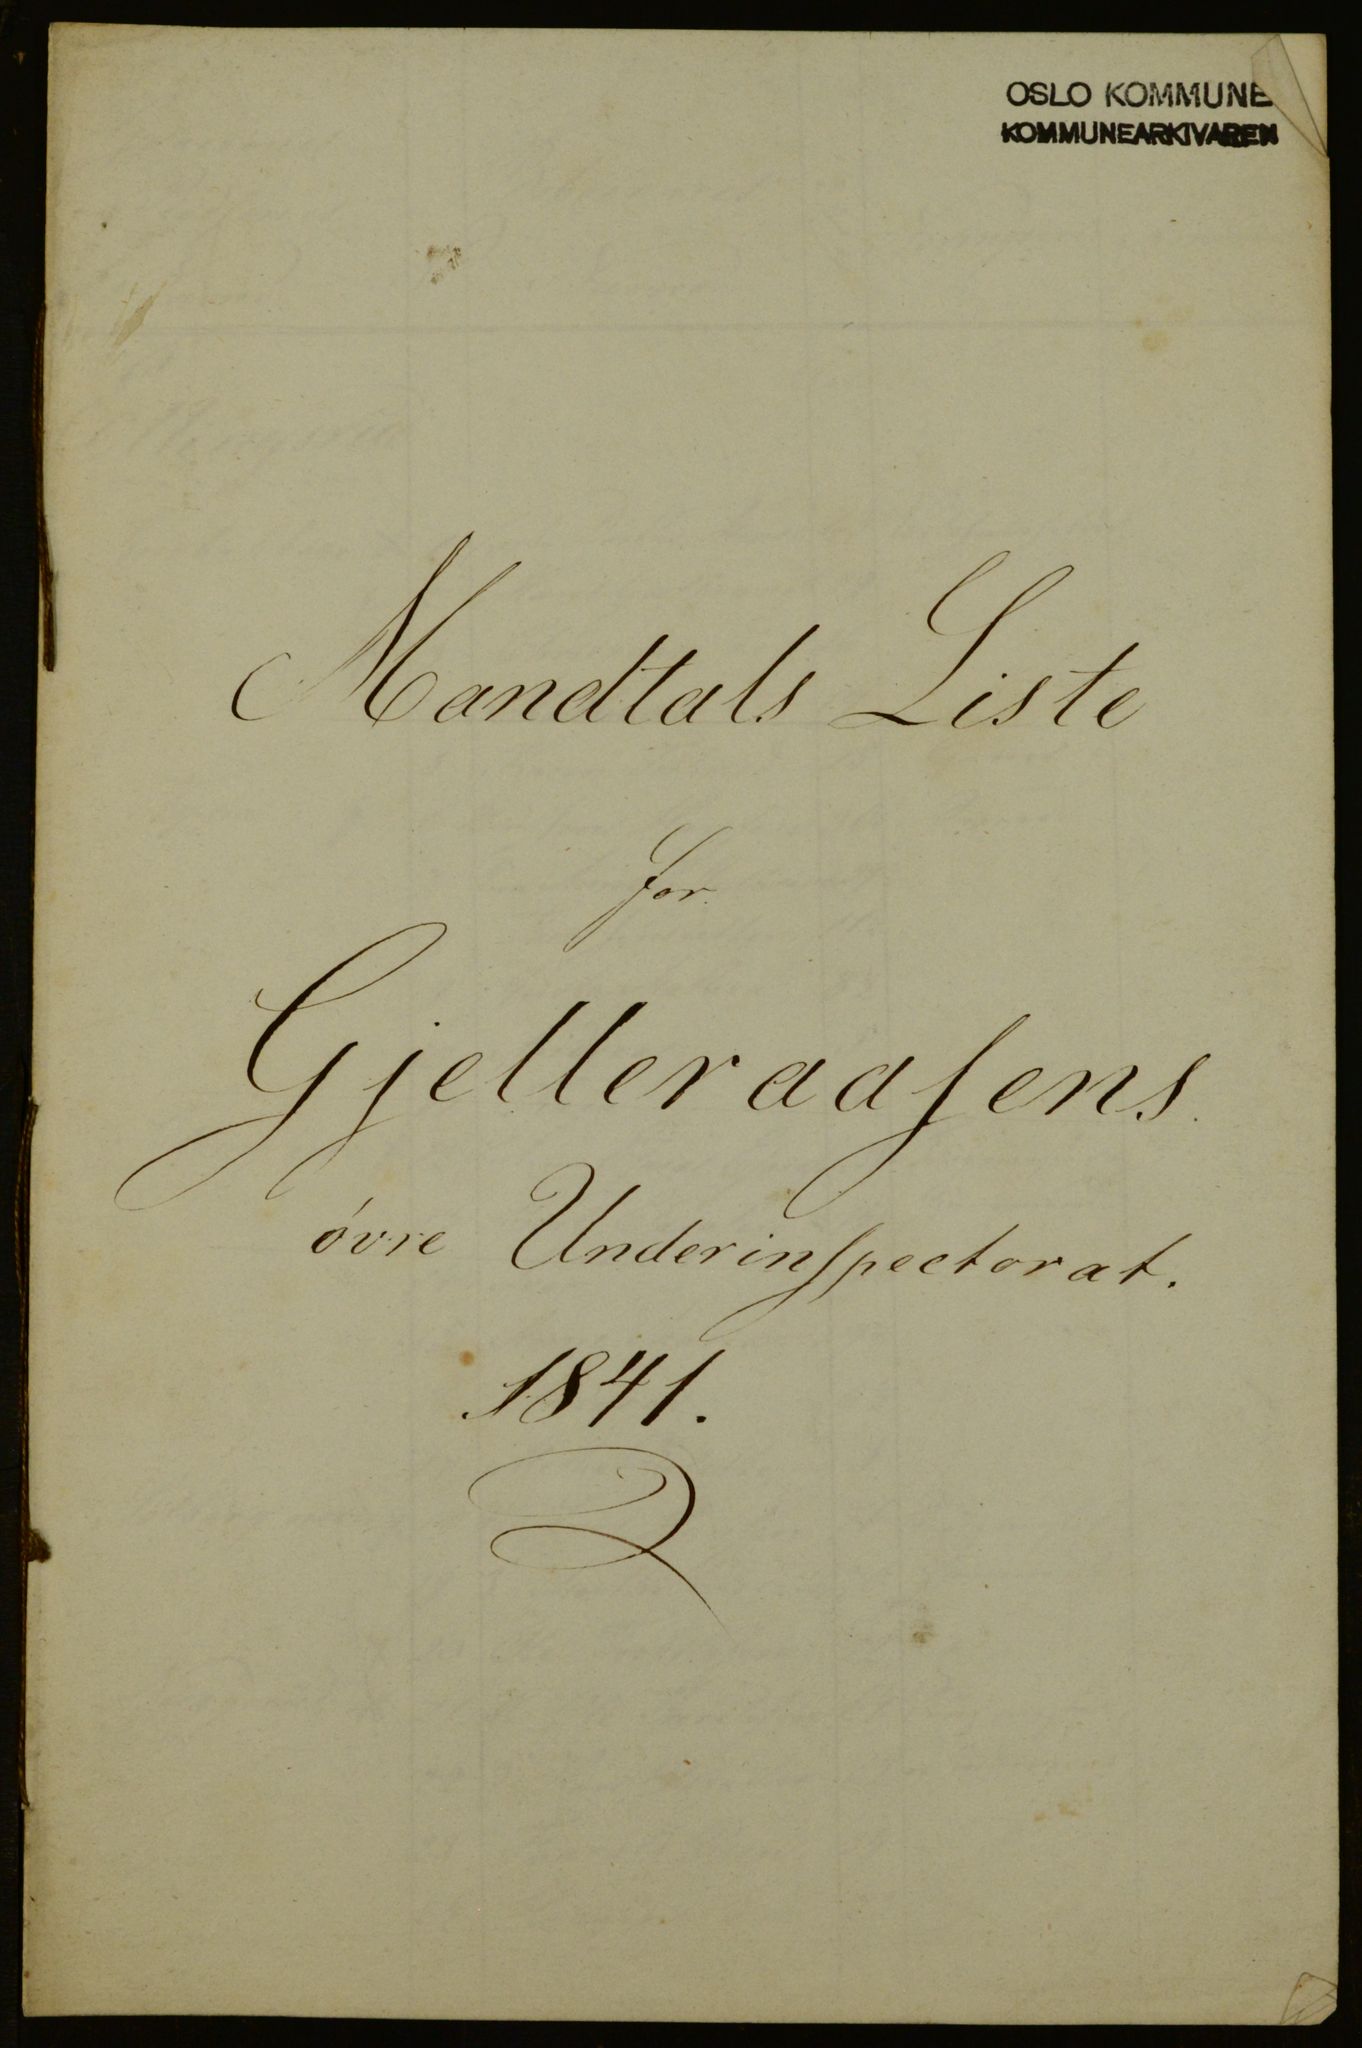 OSLO KOMMUNE
KOMMUNEARKIVAREN
Mandtals Liste
for
Gjelleraasens
övre Underinspectorat.
1841.